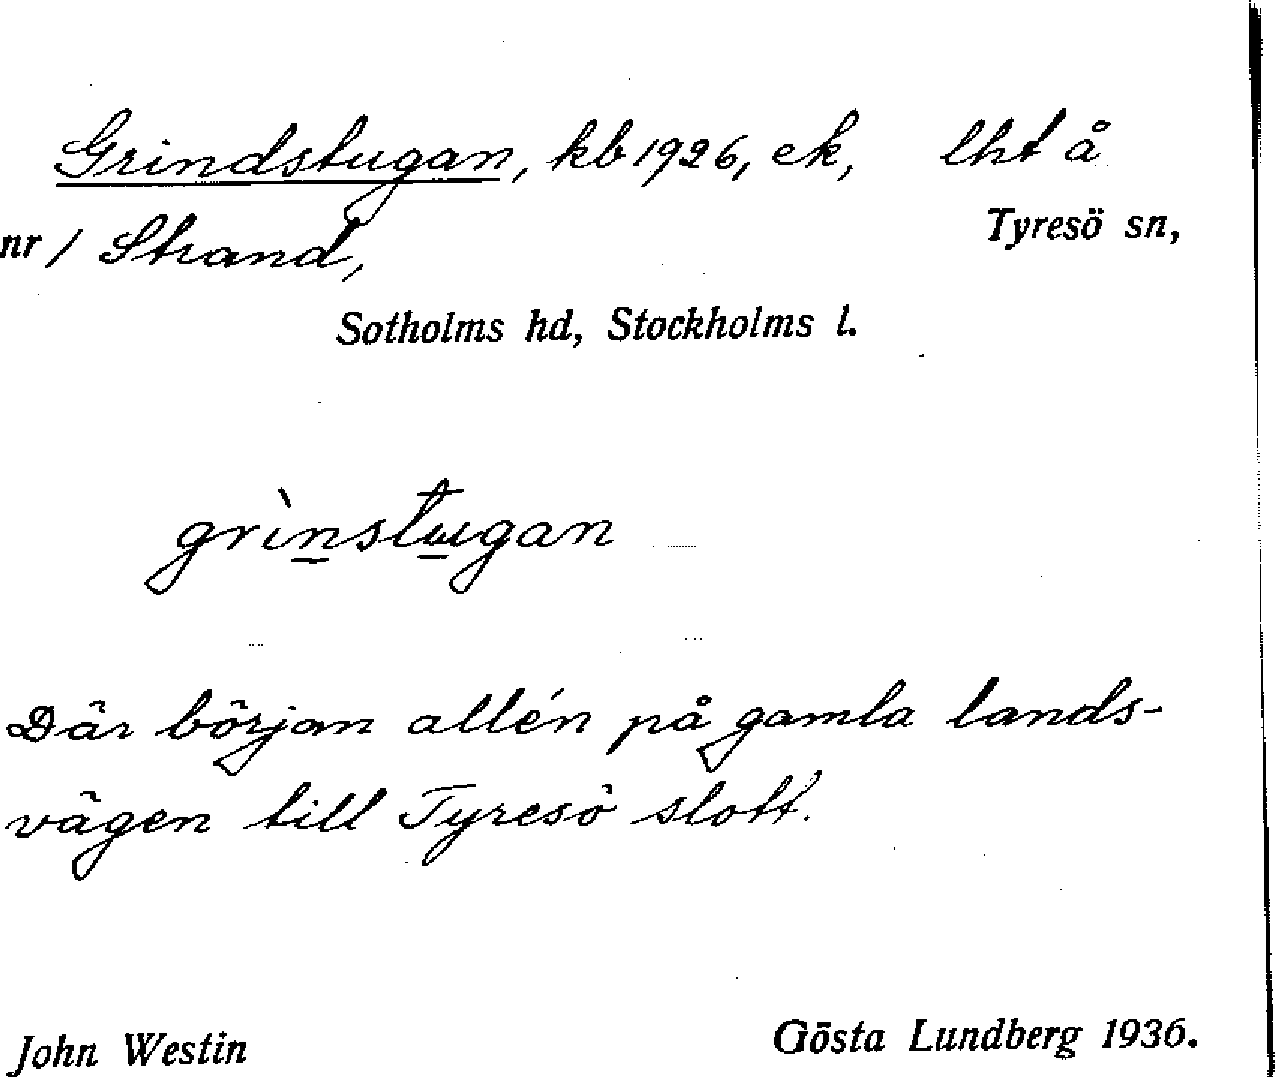 Grindstugan, kb 1926, ek, lht å
nr 1 Strand, Tyresö sn,
Sotholms hd, Stockholms l.
grìnstugan
Där början allén på gamla lands-
vägen till Tyresö slott.
John Westin Gösta Lundberg 1936.